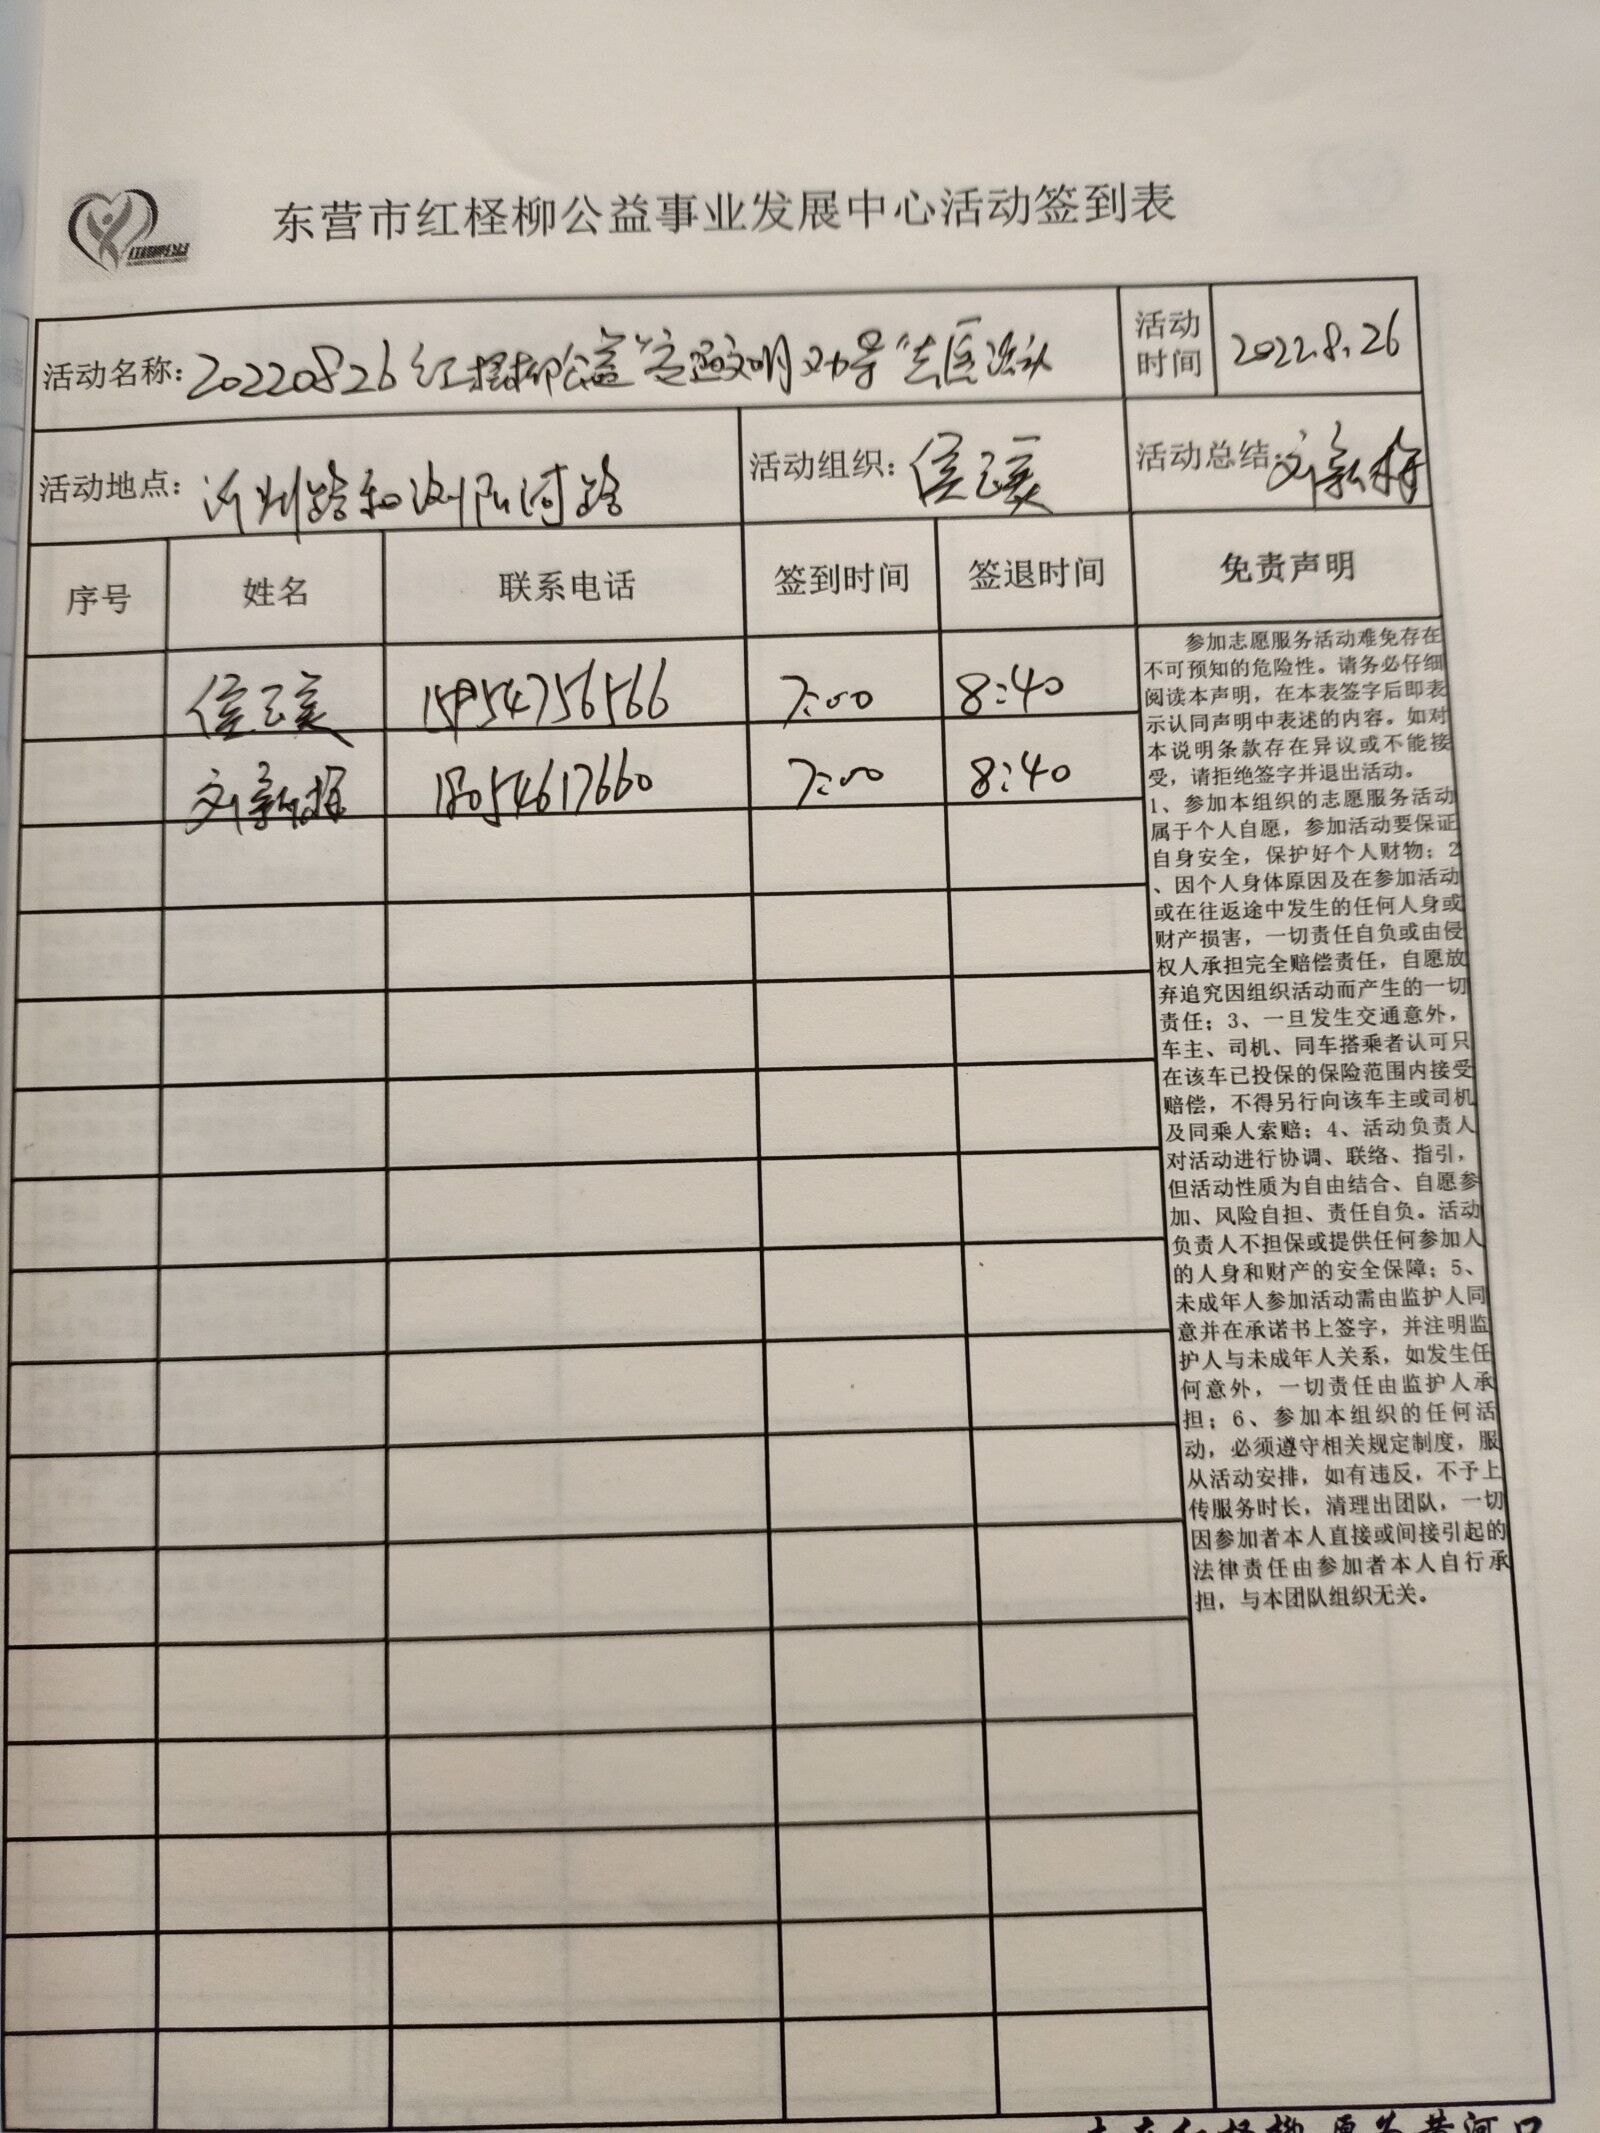 东营市红柽柳公益事业发展中心活动签到表
活动名称: 20220826红柽柳公益"交通文明劝导"
活动时间 2022.8.26
活动地点: 沂州路和浏阳河路
活动组织: 侯云霞
活动总结: 刘新梅
序号 姓名 联系电话 签到时间 签退时间 免责声明
侯云霞 7:00 8:40
刘新梅 18054617660 7:00 8:40
参加志愿服务活动难免存在
不可预知的危险性。请务必仔细
阅读本声明，在本表签字后即表
示认同声明中表述的内容。如对
本说明条款存在异议或不能接
受，请拒绝签字并退出活动。
1、参加本组织的志愿服务活动
属于个人自愿，参加活动要保证
自身安全，保护好个人财物；2
、因个人身体原因及在参加活动
或在往返途中发生的任何人身或
财产损害，一切责任自负或由侵
权人承担完全赔偿责任，自愿放
弃追究因组织活动而产生的一切
责任；3、一旦发生交通意外，
车主、司机、同车搭乘者认可只
在该车已投保的保险范围内接受
赔偿，不得另行向该车主或司机
及同乘人索赔；4、活动负责人
对活动进行协调、联络、指引，
但活动性质为自由结合、自愿参
加、风险自担、责任自负。活动
负责人不担保或提供任何参加人
的人身和财产的安全保障；5、
未成年人参加活动需由监护人同
意并在承诺书上签字，并注明监
护人与未成年人关系，如发生任
何意外，一切责任由监护人承
担；6、参加本组织的任何活
动，必须遵守相关规定制度，服
从活动安排，如有违反，不予上
传服务时长，清理出团队，一切
因参加者本人直接或间接引起的
法律责任由参加者本人自行承
担，与本团队组织无关。